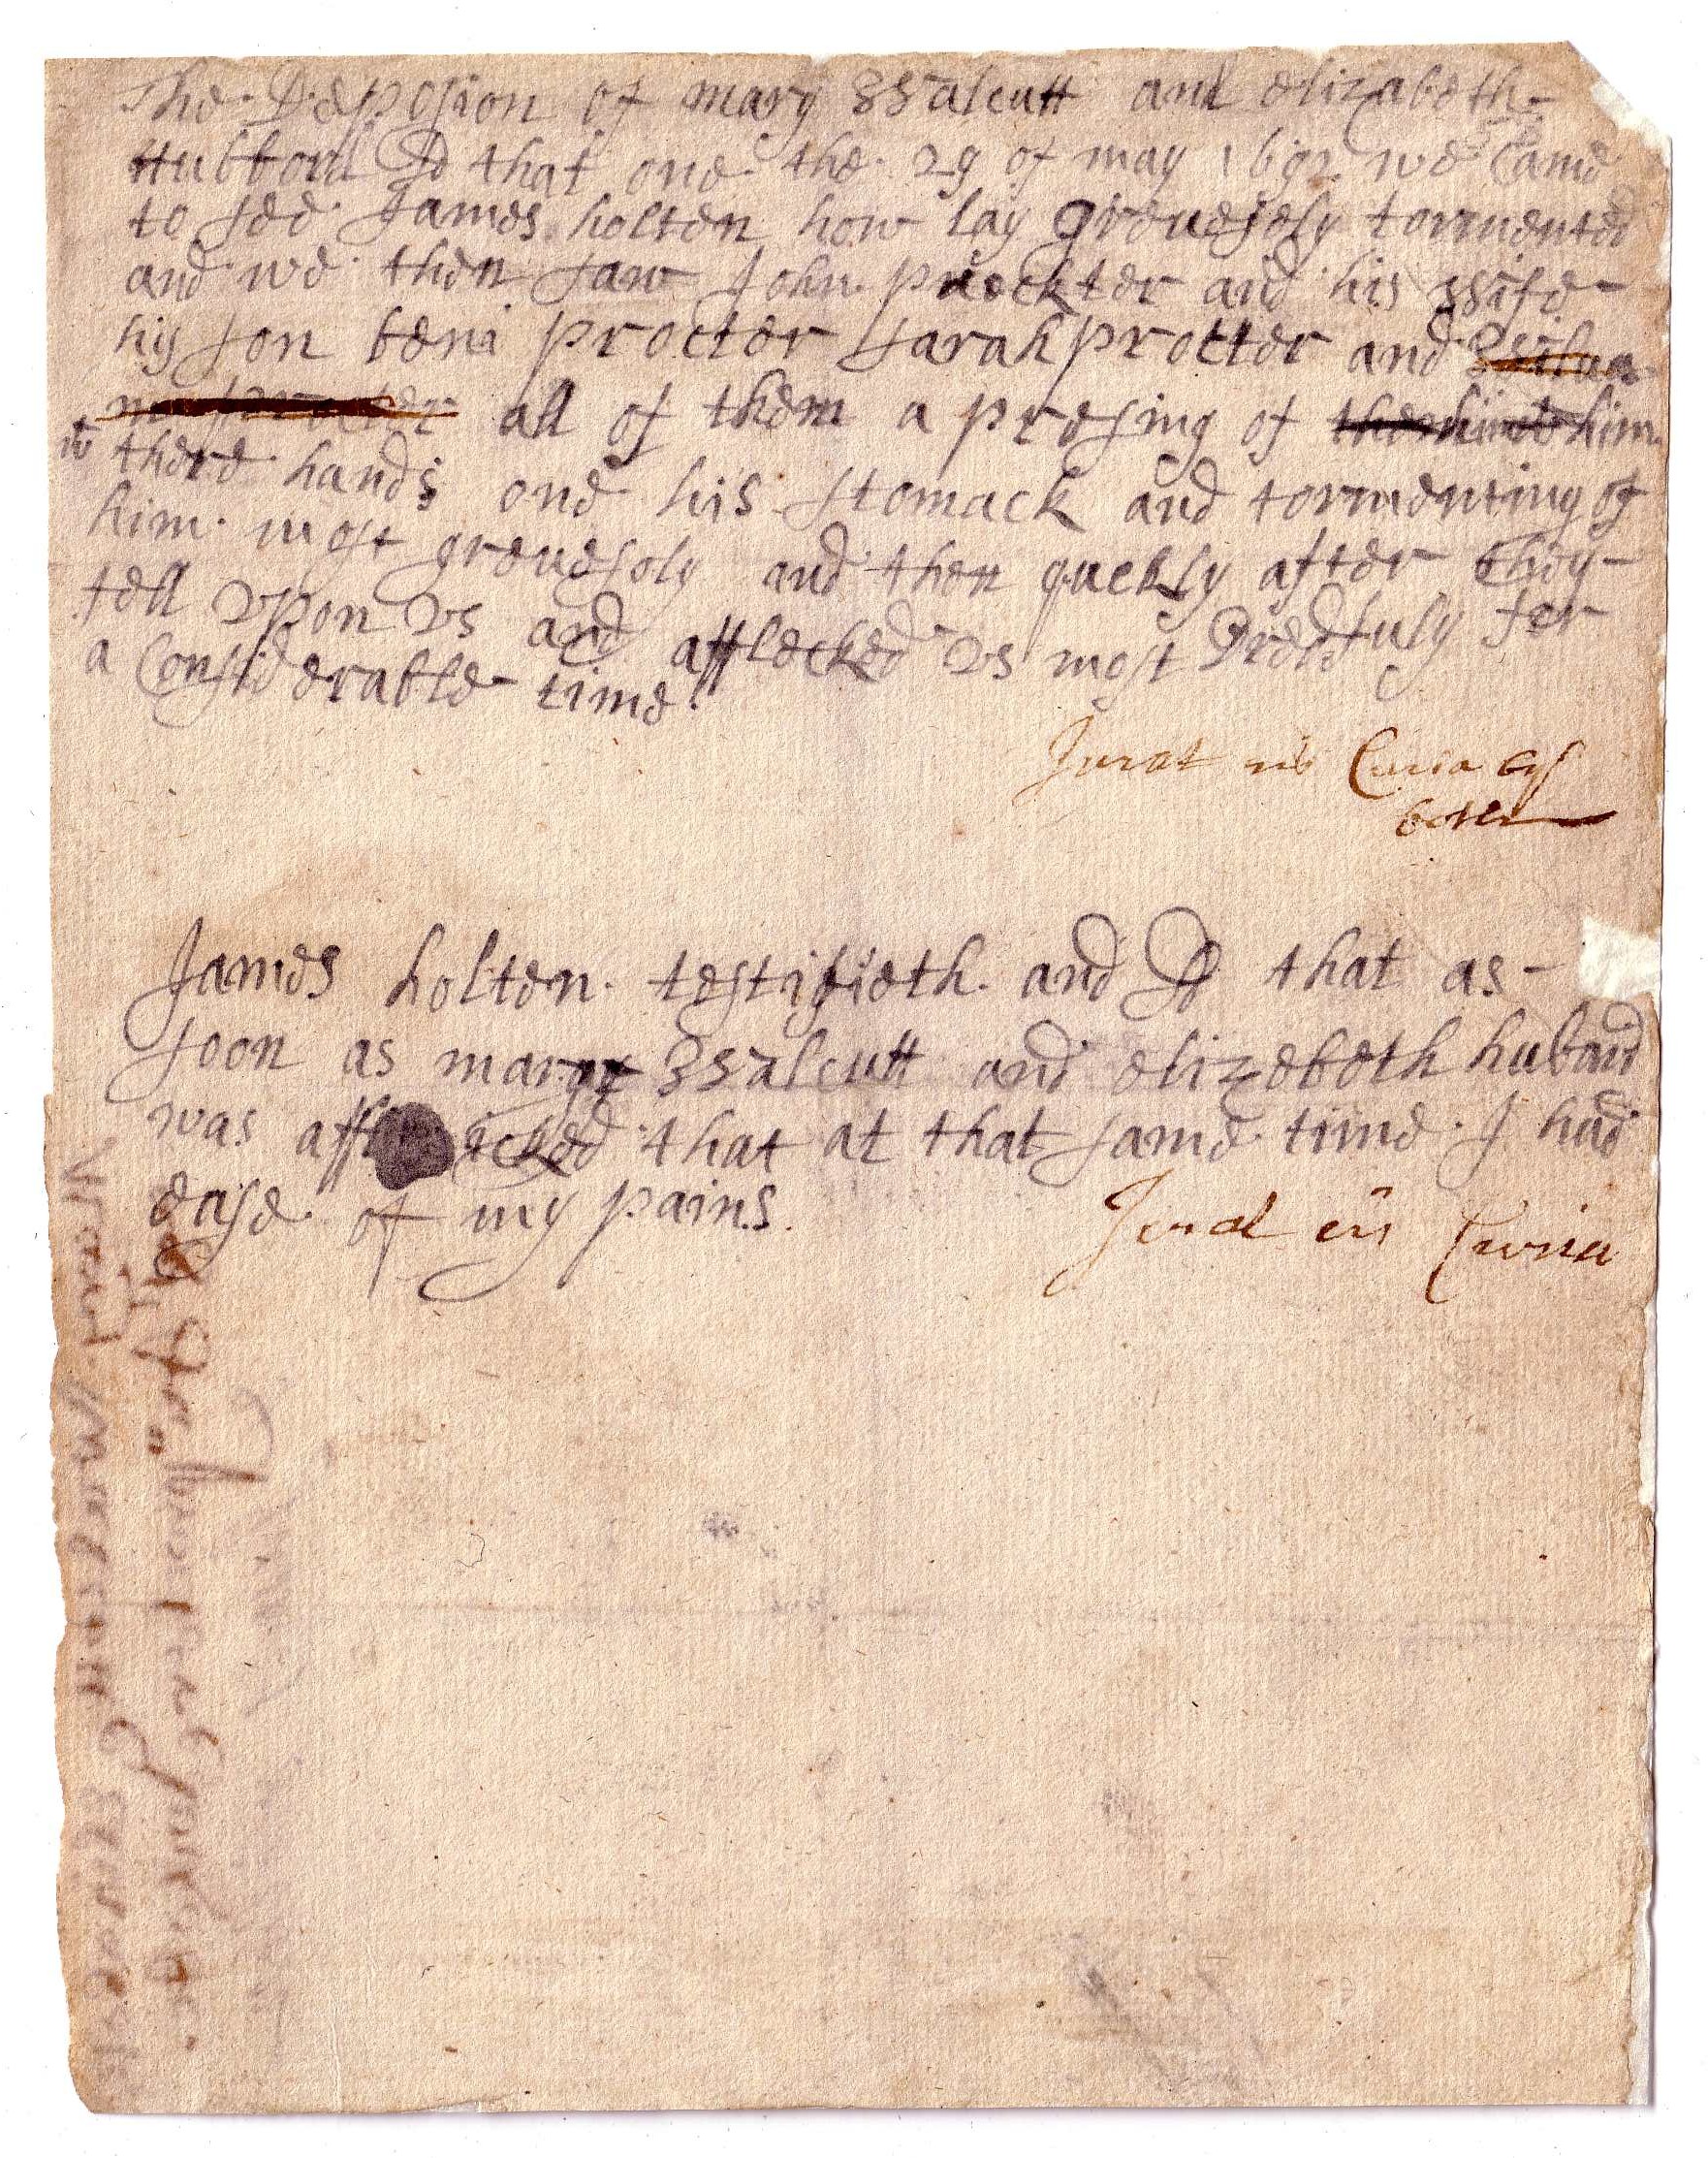 The Depposion of mary Walcutt and elizabeth
Hubbord that one the 29 of may 1692 we Came
to see James holten how lay greuesely tormented
and we then saw John prockter and his wife
his son beni procter sarah procter and
all of them a presing of him
w there hands one his stomack and tormenting of
him most greuesoly and then quekly after they
fell vpon vs and afflecked vs most Dredfuly for
a Considerable time
Jurat in Curia by
both
James holten testifieth and that as
soon as mary Walcutt and elizebeth hubard
was afflecked that at that same time I had
ease of my pains
Jurat in Curia